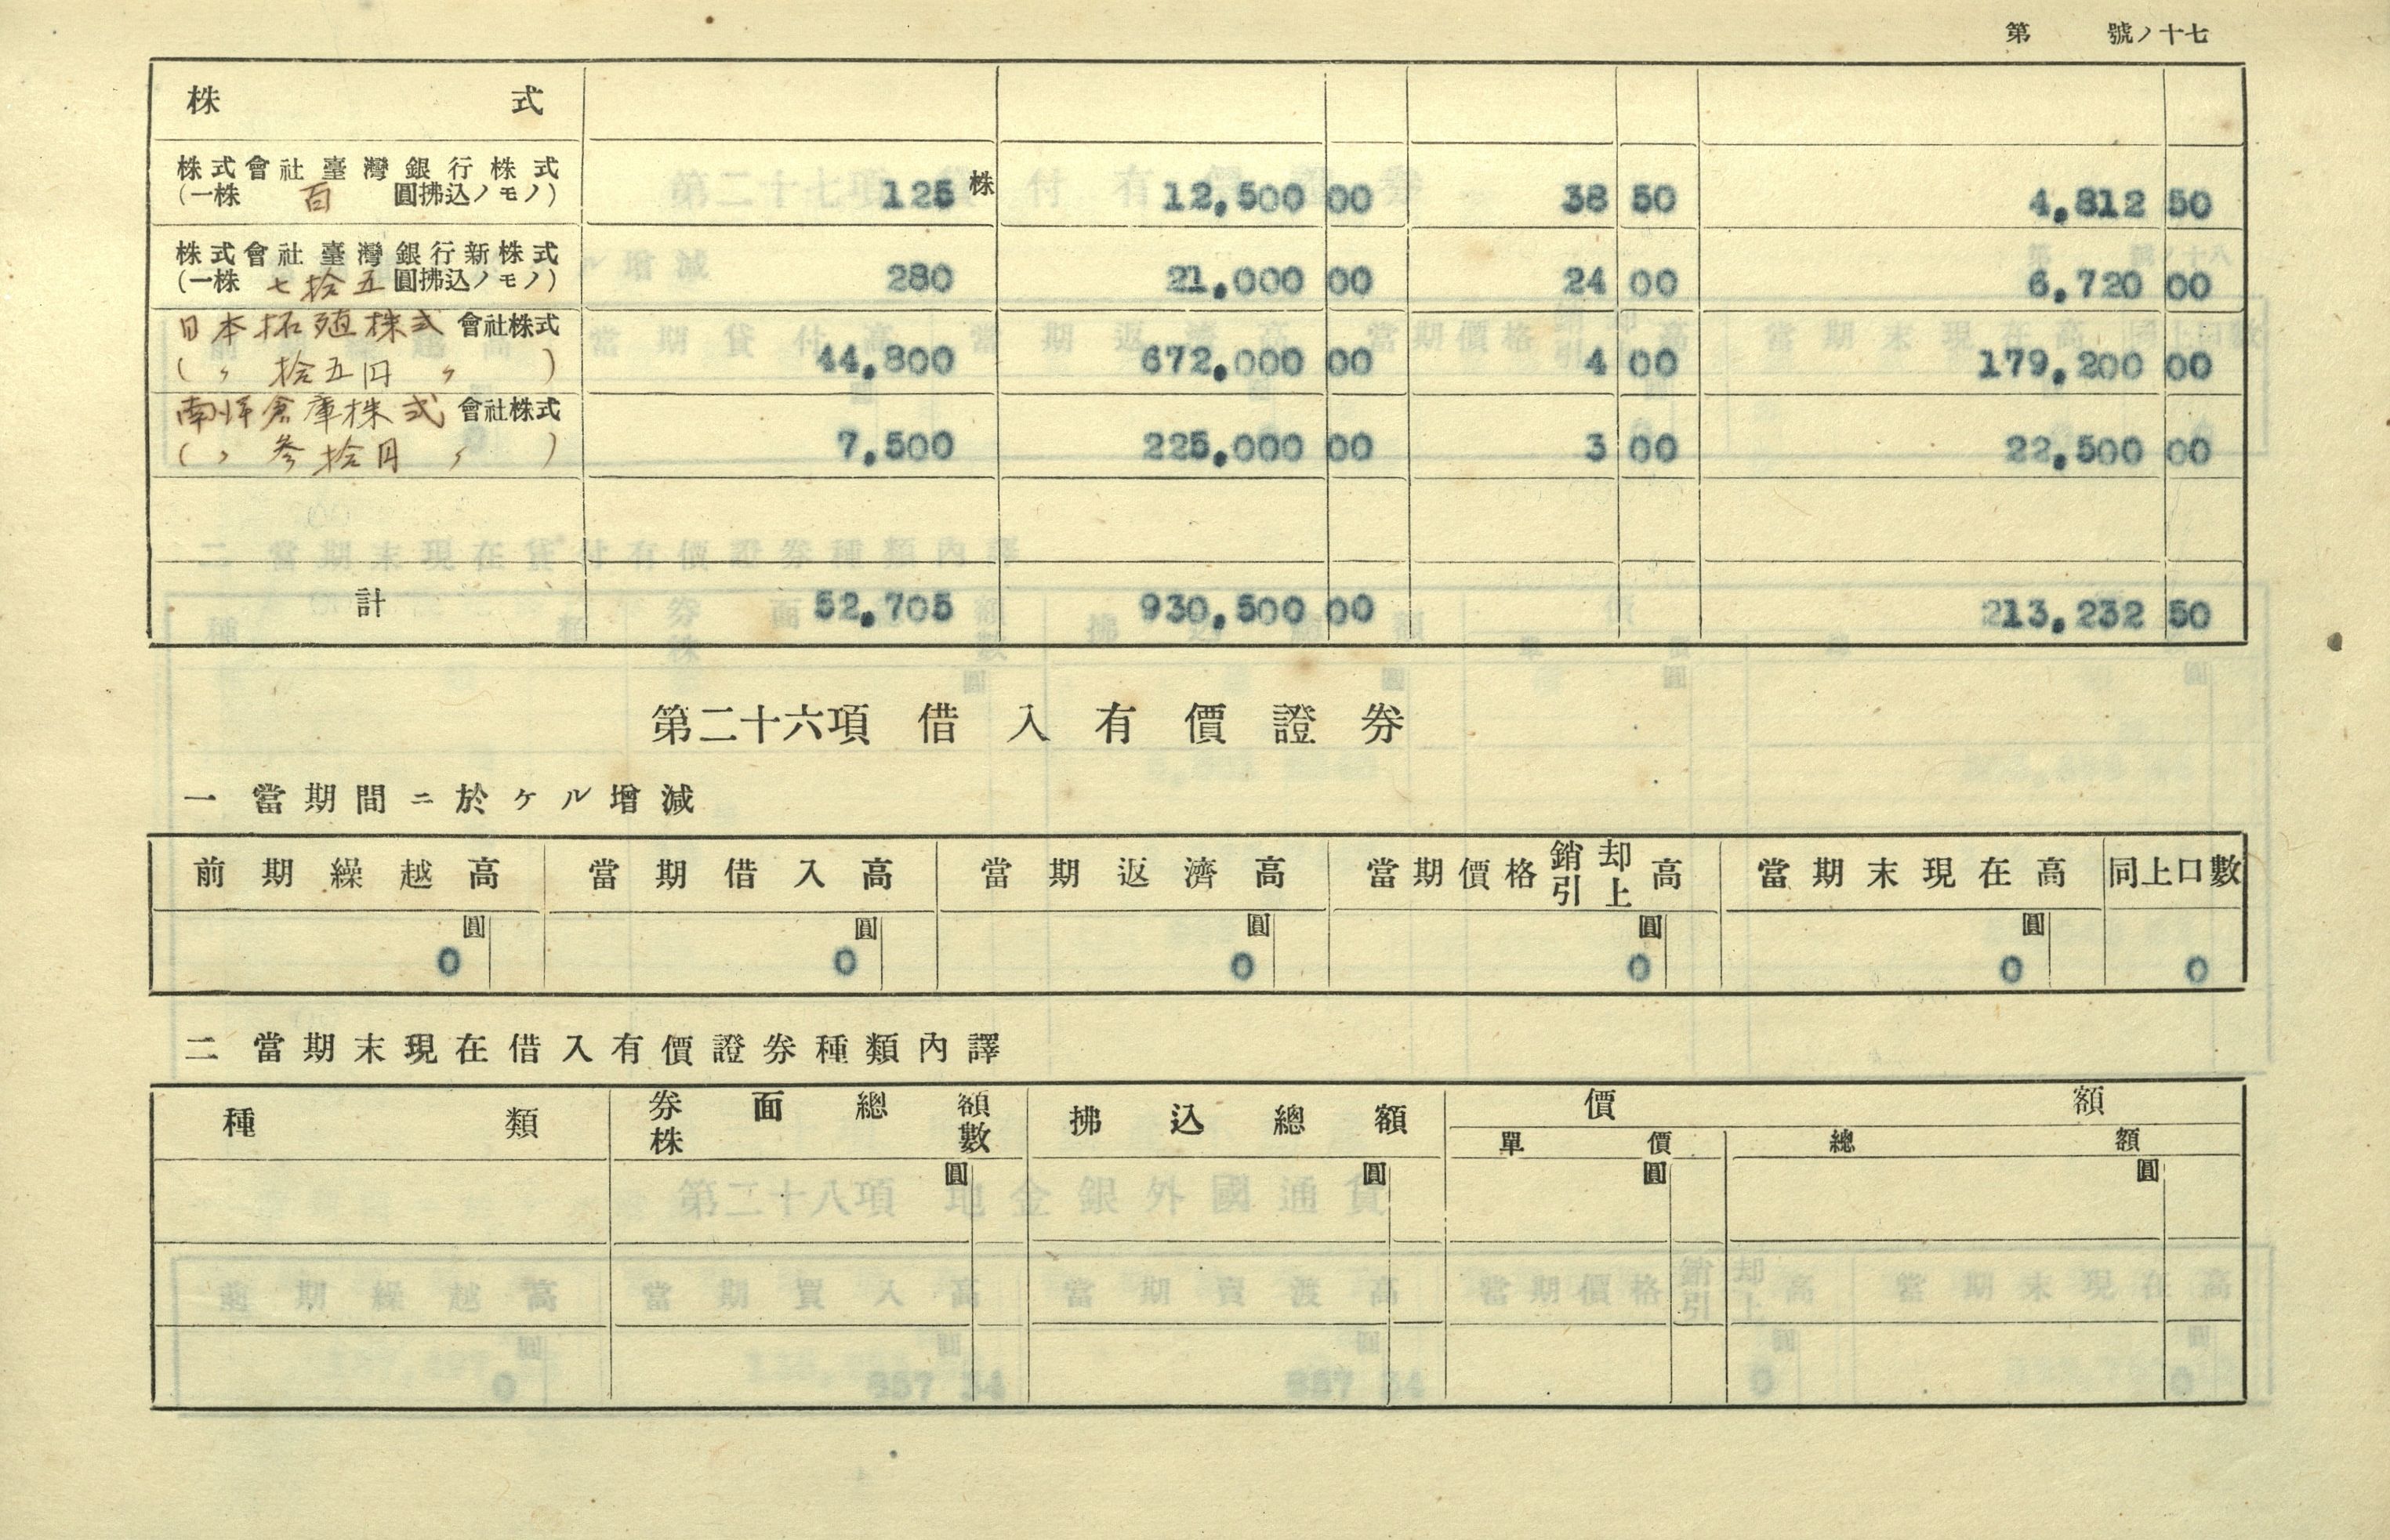 第 號ノ十七
株 式
株式會社臺灣銀行株式
(一株 百 圓拂込ノモノ) 125 株 12,500 00 38 50 4,812 50
株式會社臺灣銀行新株式
(一株 七拾五 圓拂込ノモノ) 280 21,000 00 24 00 6,720 00
日本拓殖株式會社株式
(〃 拾五円 〃 ) 44,800 672,000 00 4 00 179,200 00
南洋倉庫株式會社株式
(〃 参拾円 〃 ) 7,500 225,000 00 3 00 22,500 00
計 52,705 930,500 00 213,232 50
第二十六項 借入有價證券
一 當期間ニ於ケル增減
前期繰越高 當期借入高 當期返濟高 當期價格銷却引上高 當期末現在高 同上口數
圓 圓 圓 圓 圓
0 0 0 0 0 0
二 當期末現在借入有價證券種類內譯
種類 券面總額 株數 拂込總額 價額
單價 總額
圓 圓 圓 圓